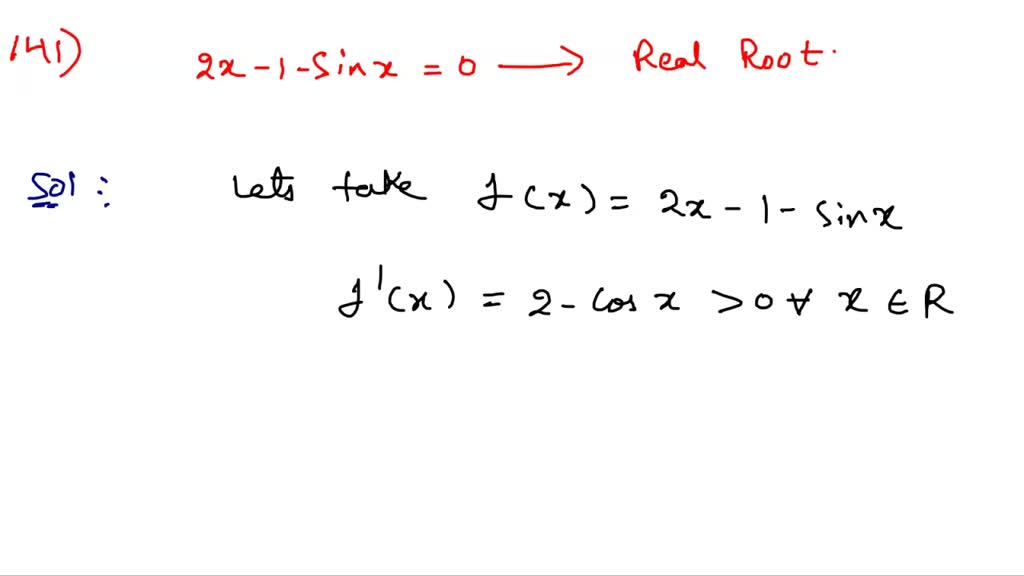 141) 2x - 1 - Sin x = 0 → Real Root.
Sol: Lets take f(x) = 2x - 1 - sin x
f'(x) = 2 - cos x > 0 ∀ x ∈ R